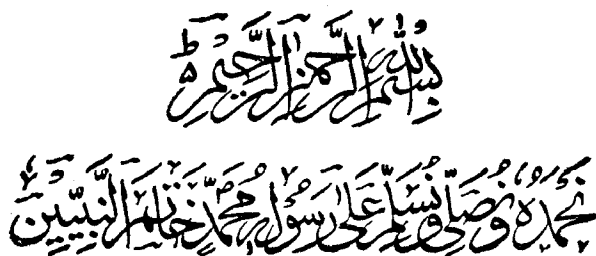 بِسْمِ اللّٰهِ الرَّحْمٰنِ الرَّحِيْمِ ط
نَحْمَدُهٗ وَنُصَلِّيْ وَنُسَلِّمُ عَلٰى رَسُوْلِهٖ مُحَمَّدٍ خَاتَمِ النَّبِيّٖنَ